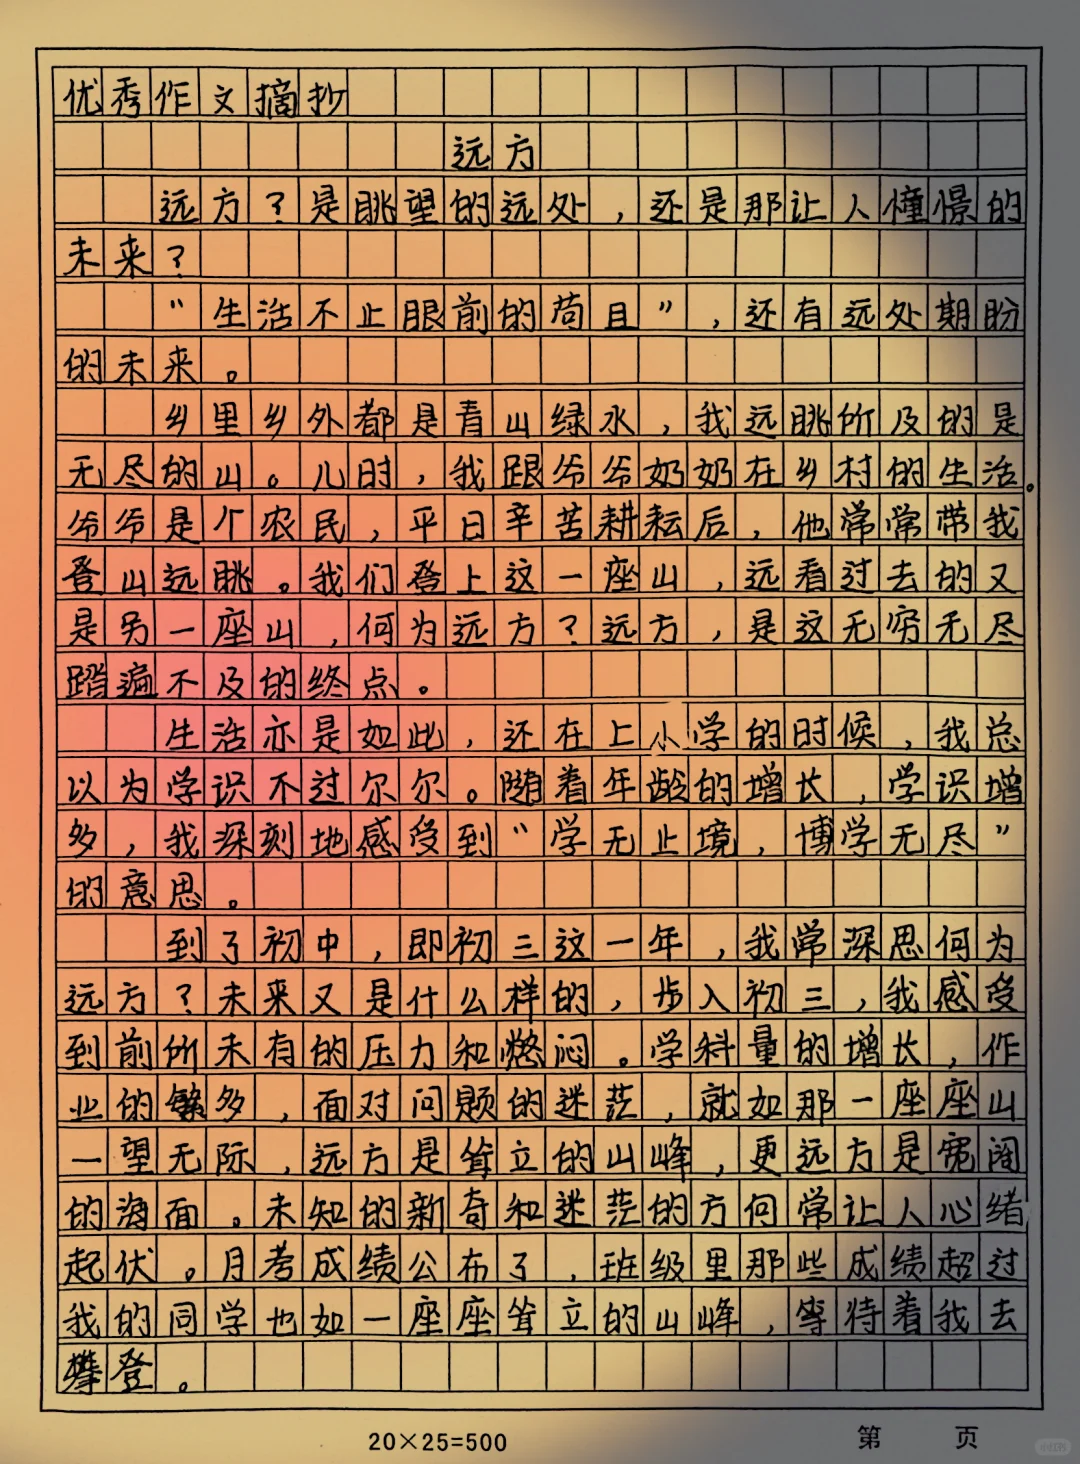 优秀作文摘抄
远方
远方？是眺望的远处，还是那让人憧憬的
未来？
“生活不止眼前的苟且”，还有远处期盼
的未来。
乡里乡外都是青山绿水，我远眺所及的是
无尽的山。儿时，我跟爷爷奶奶在乡村的生活。
爷爷是个农民，平日辛苦耕耘后，他常常带我
登山远眺。我们登上这一座山，远看过去的又
是另一座山，何为远方？远方，是这无穷无尽
踏遍不及的终点。
生活亦是如此，还在上小学的时候，我总
以为学识不过尔尔。随着年龄的增长，学识增
多，我深刻地感受到“学无止境，博学无尽”
的意思。
到了初中，即初三这一年，我常深思何为
远方？未来又是什么样的，步入初三，我感受
到前所未有的压力和愁闷。学科量的增长，作
业的繁多，面对问题的迷茫，就如那一座座山
一望无际，远方是耸立的山峰，更远方是宽阔
的海面。未知的新奇和迷茫的方向常让人心绪
起伏。月考成绩公布了，班级里那些成绩超过
我的同学也如一座座耸立的山峰，等待着我去
攀登。
20×25=500
第 页
小红书